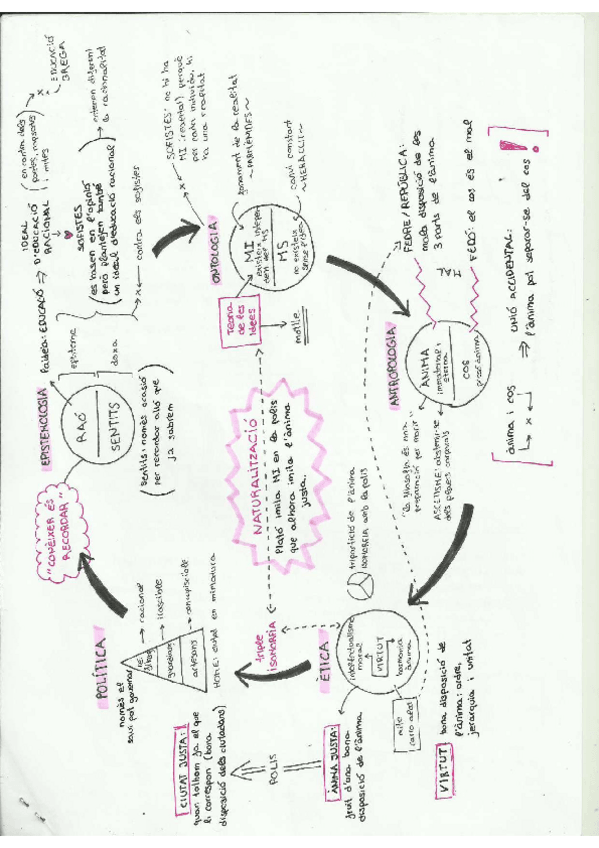 EPISTEMOLOGIA
RAÓ
SENTITS
episteme
doxa
Sentits: només ocasió
per recordar allò que
ja sabíem
"CONÈIXER ÉS
RECORDAR"
Paideia: EDUCACIÓ ⇒
IDEAL
D'EDUCACIÓ
RACIONAL
en contra dels
poetes, rapsodes
i mites
EDUCACIÓ
GREGA
SOFISTES
es basen en l'opinió
però plantegen també
un ideal d'educació racional
entenen diferent
la racionalitat
contra els sofistes
ONTOLOGIA
MI
existeix indepen-
dent del MS
MS
no existeix
sense
SOFISTES: no hi ha
MI (realitat) perquè
per cada individu, hi
ha una realitat
fonament de la realitat
~PARMÈNIDES~
canvi constant
~HERÀCLIT~
Teoria
de les
Idees
motlle
ANTROPOLOGIA
ÀNIMA
immaterial i
eterna
COS
presó ànima
FEDRE/REPÚBLICA:
mala disposició de les
3 parts de l'ànima
FEDÓ: el cos és el mal
ànima i cos
UNIÓ ACCIDENTAL:
⇒ l'ànima pot separar-se del cos
!
"la filosofia és una
preparació per morir"
ASCETISME: abstenir-se
dels plaers corporals
NATURALITZACIÓ
Plató imita MI en la polis
que alhora imita l'ànima
justa.
ÈTICA
intel·lectualisme
moral
VIRTUT
harmonia
ànima
tripartició de l'ànima
ISOMORFIA amb la polis
mite
carro alat
VIRTUT
bona disposició de
l'ànima: ordre,
jerarquia i unitat
ÀNIMA JUSTA:
fruit d'una bona
disposició de l'ànima
POLIS
triple
isomorfia
POLÍTICA
només el
savi pot governar
guardians
artesans
racional
irascible
concupiscible
HOME: ciutat en miniatura
CIUTAT JUSTA:
quan tothom fa el que
li correspon (bona
disposició dels ciutadans)